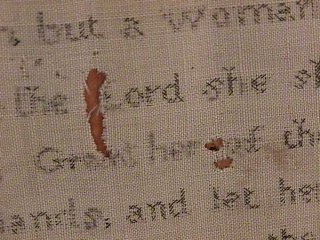 , but a woman
the Lord she sh
Grant her of the
hands, and let he
the